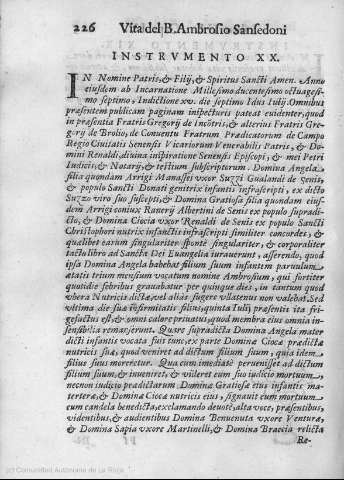 226 Vita del B. Ambrosio Sansedoni
INSTRVMENTO XX.
IN Nomine Patris, & Filij, & Spiritus Sancti Amen. Anno
eiusdem ab Incarnatione Millesimo ducentesimo octuagesi-
mo septimo, Indictione xv. die septimo Idus Iulij. Omnibus
præsentem publicam paginam inspecturis pateat euidenter, quod
in præsentia Fratris Gregorij de Incitris, & alterius Fratris Gre-
gorij de Brolio, de Conuentu Fratrum Prædicatorum de Campo
Regio Ciuitatis Senensis Vicariorum Venerabilis Patris, & Do-
mini Renaldi, diuina inspiratione Senensis Episcopi, & mei Petri
Iudicis, & Notarij, & testium subscriptorum. Domina Angela
filia quondam Arrigi Manassei vxor Suzzi Gualandi de Senis,
& populo Sancti Donati genitrix infantis infrascripti, ex dicto
Suzzo viro suo suscepti, & Domina Gratiosa filia quondam eius-
dem Arrigi coniux Ranerij Albertini de Senis ex populo supradi-
cto, & Domina Ciocia vxor Renaldi de Senis ex populo Sancti
Christophori nutrix infantis infrascripti similiter concordes, &
quælibet earum singulariter sponte singulariter, & corporaliter
tacto libro ad Sancta Dei Euangelia iurauerunt, asserendo, quod
ipsa Domina Angela habebat filium suum infantem paruulum
ætatis trium mensium vocatum nomine Ambrosium, qui fortiter
quotidie febribus grauabatur per quinque dies, in tantum quod
vbera Nutricis dictæ, vel alias sugere vllatenus non valebat. Sed
vltima die sua infirmitatis filius, quinta Iulij præsentis ita fri-
gefactus est, & omni calore priuatus, quod membra eius omnia in-
sensibilia remanserunt. Quare supradicta Domina Angela mater
dicti infantis vocata fuit tunc, ex parte Domina Ciocæ prædictæ
nutricis suæ, quod veniret ad dictum filium suum, quia idem
filius suus moreretur. Qua cum imediatè peruenisset ad dictum
filium suum, & inueniret, & videret eum suo iudicio mortuum,
necnon iudicio prædictarum Domina Gratiosæ eius infantis ma-
terteræ, & Domina Ciocæ nutricis eius, signauit eum mortuum
cum candela benedicta, exclamando deuotè, alta voce, præsentibus,
videntibus, & audientibus Domina Benuenuta vxore Venturæ,
& Domina Sapia vxore Martinelli, & Domina Braccia relicta
Re-
(c) Comunidad Autónoma de La Rioja